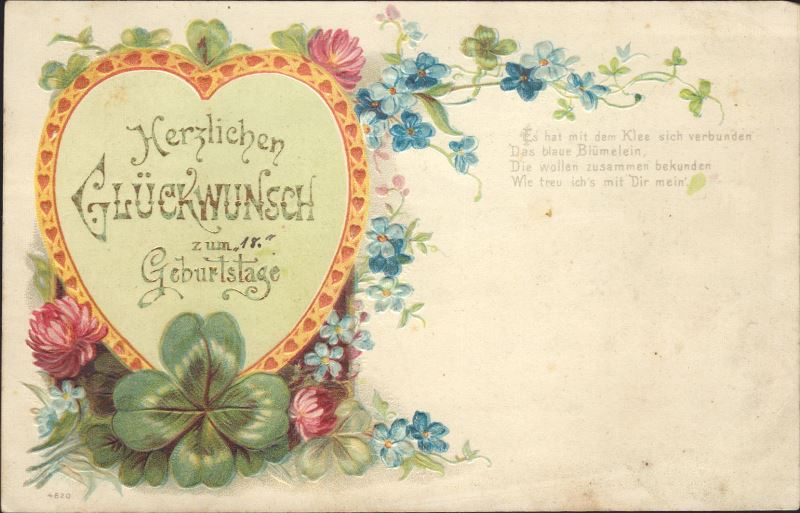 Herzlichen
GLÜCKWUNSCH
zum „18.“
Geburtstage
Es hat mit dem Klee sich verbunden
Das blaue Blümelein,
Die wollen zusammen bekunden
Wie treu ich's mit Dir mein'.
4620